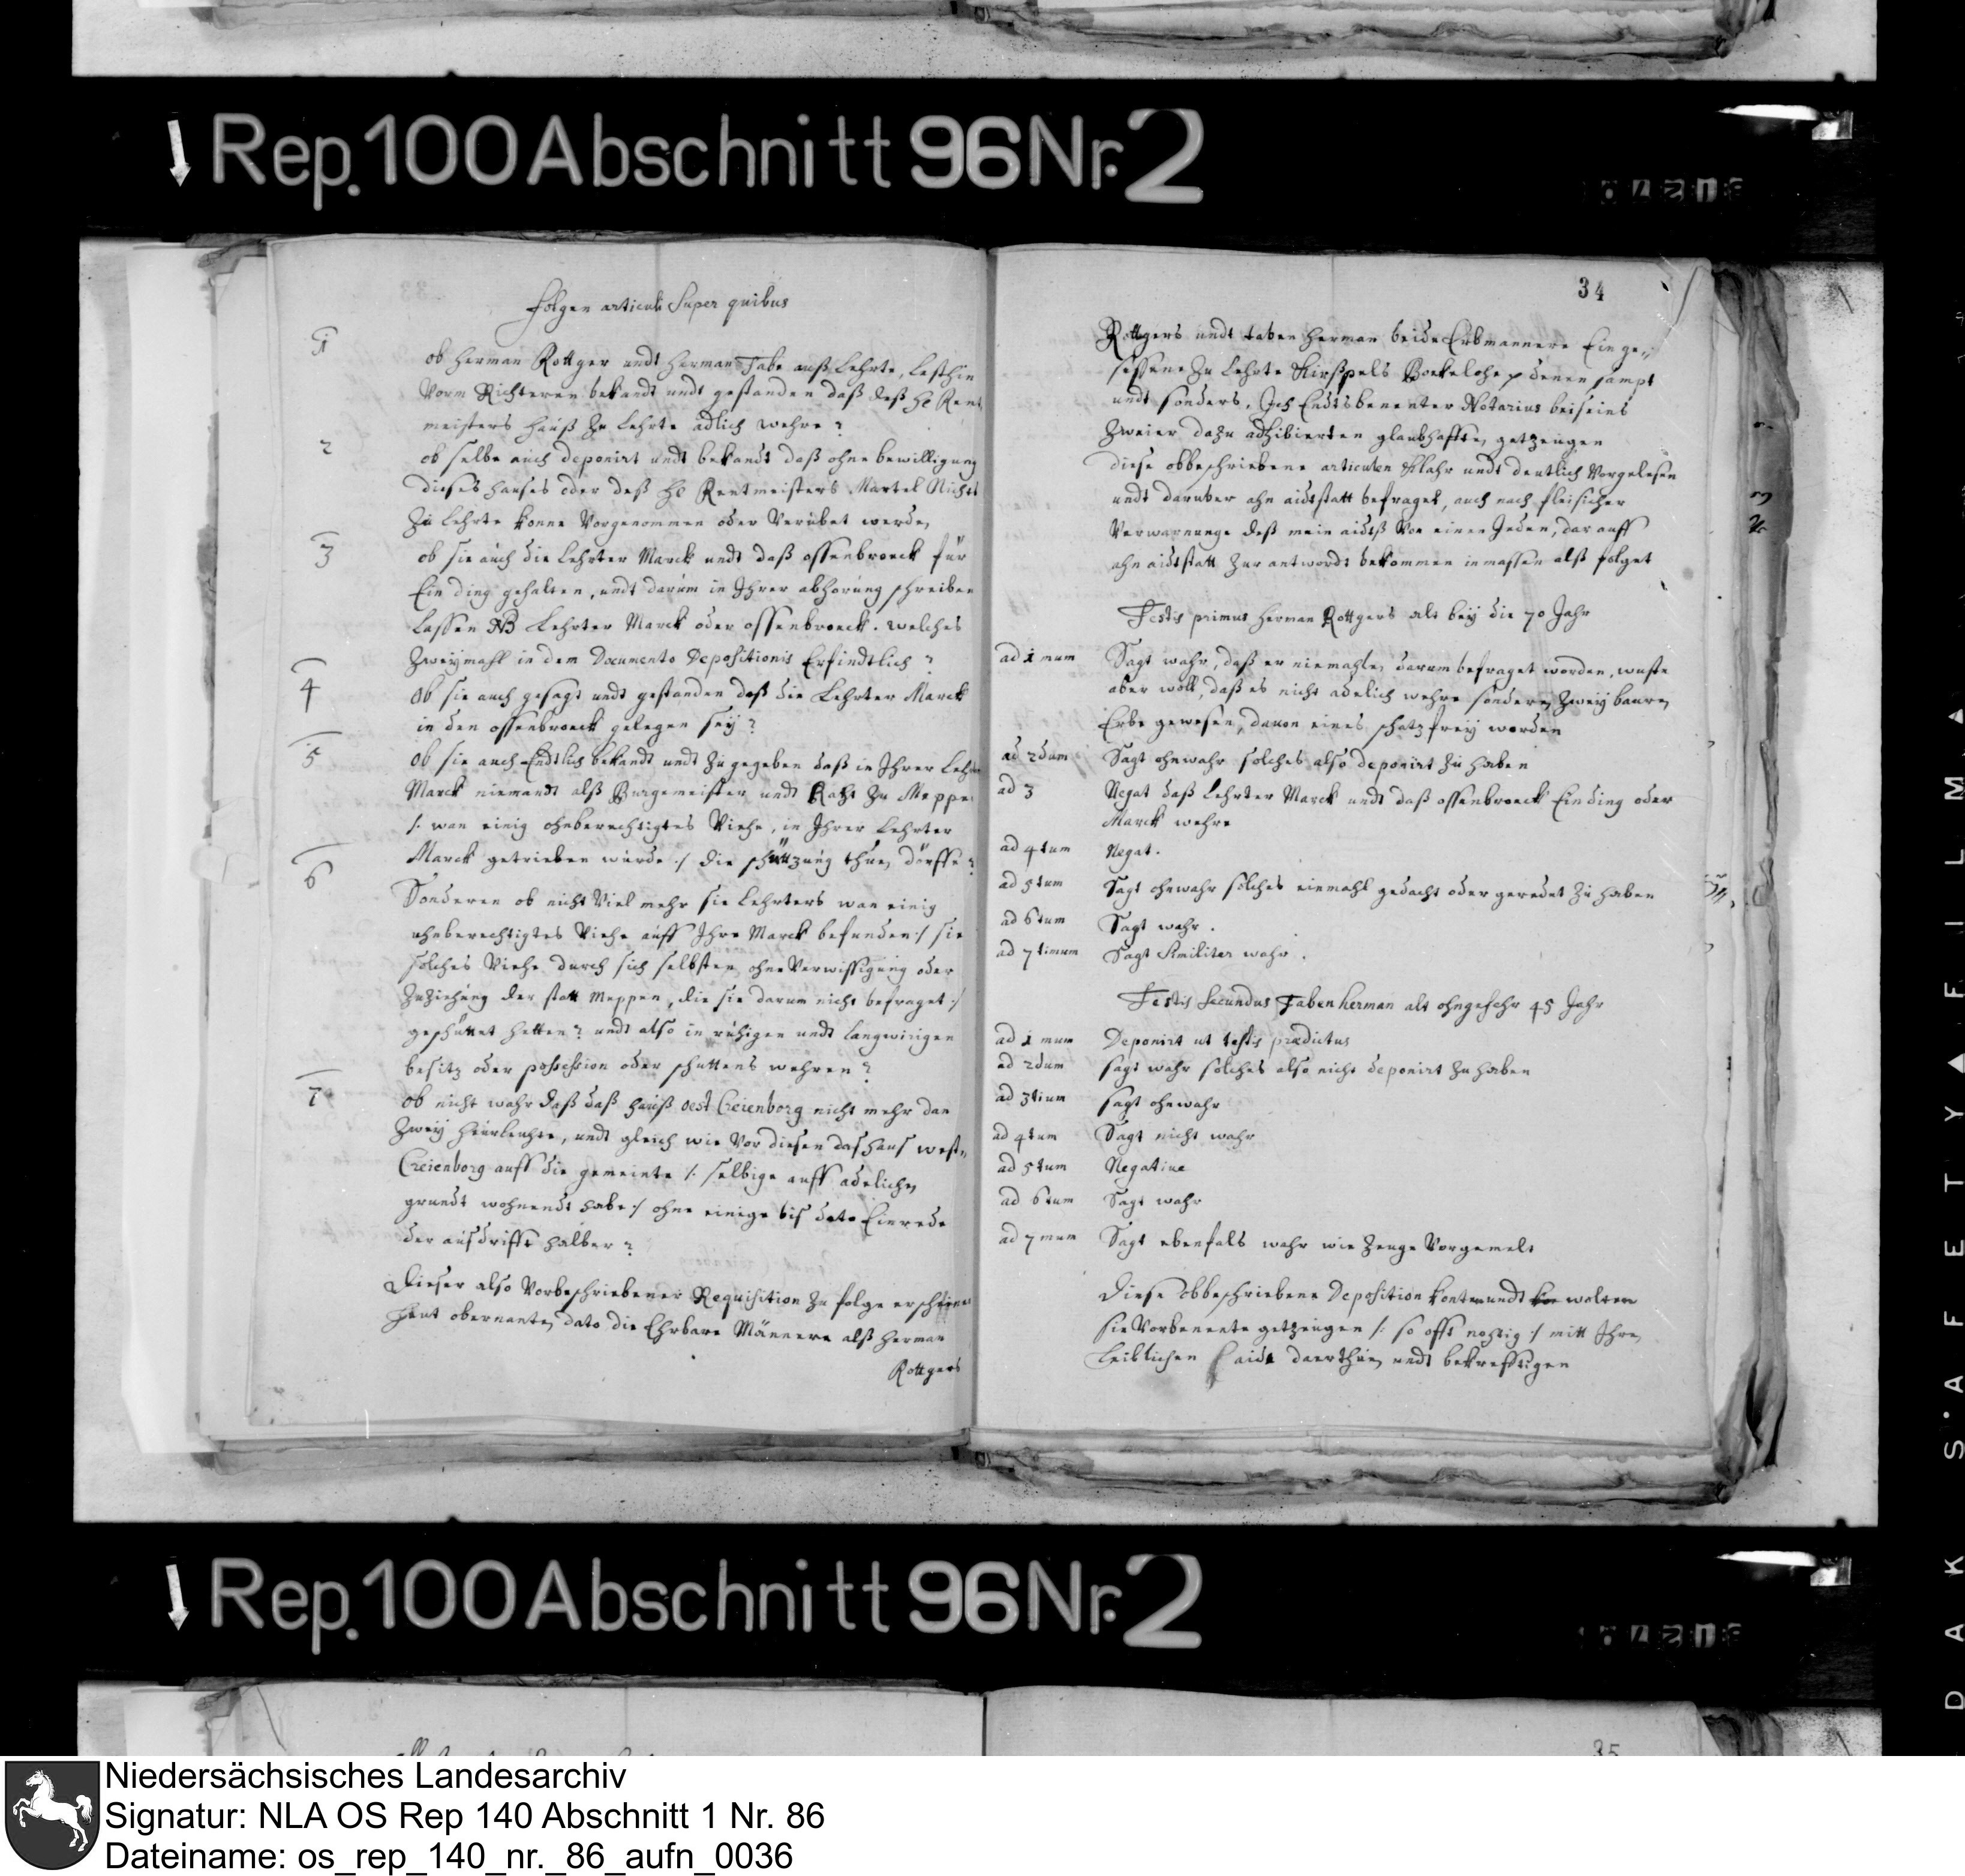 Rep. 100 Abschnitt 96 Nr. 2
Folgen articuli Super quibus
1
ob Herman Rottger undt Herman Tabe auß Lehrte, lesthin
Vorm Richteren bekandt undt gestanden daß deß H Rent
meisters hauß zu Lehrte adlich wehre?
2
ob selbe auch deponirt undt bekandt daß ohne bewilligung
dieses hauses oder deß H Rentmeisters Martel Nichts
zu Lehrte konne Vorgenommen oder Verübet werden
3
ob sie auch die Lehrter Marck undt daß ossenbroeck für
Ein ding gehalten, undt darum in Ihrer abhorung schreiben
lassen NB Lehrter Marck oder ossenbroeck. welches
Zweymahl in dem Documento Depositionis Erfindtlich?
4
Ob sie auch gesagt undt gestanden daß die Lehrter Marck
in den ossenbroeck gelegen sey?
5
Ob sie auch Endtlich bekandt undt zugegeben daß in Ihrer Lehr
Marck niemandt alß Burgemeister undt Raht zu Meppe
/: wan einig ohnberechtigtes Viehe, in Ihrer Lehrter
Marck getrieben würde :/ die schüttzung thun dörffe?
6
Sonderen ob nicht Viel mehr sie Lehrters wan einig
ohnberechtigtes Viehe auff Ihre Marck befunden :/ sie
solches Viehe durch sich selbsten ohne Verwissigung oder
Zuziehung der statt Meppen, die sie darum nicht befraget :/
geschüttet hetten? undt also in ruhigen undt langwirigen
besitz oder possession oder schuttens wehren?
7
ob nicht wahr daß daß hauß oest Creienborg nicht mehr dan
Zwey heurleuhte, undt gleich wie Vor diesen das haus west
Creienborg auff die gemeinte /: selbige auff adelichen
grundt wohnendt habe :/ ohne einige bis dato Einrede
der ausdrifft halber?
Dieser also Vorbeschriebener Requisition zu folge erschienen
heut obernanten dato die Ehrbare Männere alß Herman
Rottgers
34
Rottgers undt taben Herman beide Erbmannere Einge
sessene zu Lehrte Kirßpels Bokelohe denen sampt
undt sonders, Ich Endtsbenenter Notarius beiseins
Zweier dazu adhibierten glaubhafften getzeugen
diese obbeschriebene articulen Klahr undt deutlich Vorgelesen
undt daruber ahn aidtstatt befraget, auch nach fleisicher
Verwarnunge deß mein aidtß Von einen Jeden, dar auff
ahn aidtstatt zur antwordt bekommen inmassen alß folget
Testis primus Herman Rottgers alt bey die 70 Jahr
ad 1mum Sagt wahr, daß er niemahlen darum befraget worden, wuste
aber woll, daß es nicht adelich wehre sonderen Zwey bauren
Erbe gewesen, dauon eines schatz frey worden
ad 2dum Sagt ohnwahr solches also deponirt zu haben
ad 3 Negat daß Lehrter Marck undt daß ossenbroeck Ein ding oder
Marck wehre
ad 4tum Negat.
ad 5tum Sagt ohnwahr solches einmahl gedacht oder geredet zu haben
ad 6tum Sagt wahr.
ad 7timum Sagt Similiter wahr.
Testis Secundus Taben Herman alt ohngefehr 45 Jahr
ad 1mum Deponirt ut testis prædictus
ad 2dum sagt wahr solches also nicht deponirt zu haben
ad 3tium sagt ohnwahr
ad 4tum Sagt nicht wahr
ad 5tum Negatiue
ad 6tum Sagt wahr
ad 7mum Sagt ebenfals wahr wie Zeuge Vorgemelt
Diese obbeschriebene Deposition konten undt wolten
sie Vorbenente getzeugen /: so offt nohtig :/ mitt Ihren
Leiblichen aide daerthun undt bekrefftigen
Rep. 100 Abschnitt 96 Nr. 2
35
DAK S·A FETY▲FILM▲
Niedersächsisches Landesarchiv
Signatur: NLA OS Rep 140 Abschnitt 1 Nr. 86
Dateiname: os_rep_140_nr._86_aufn_0036